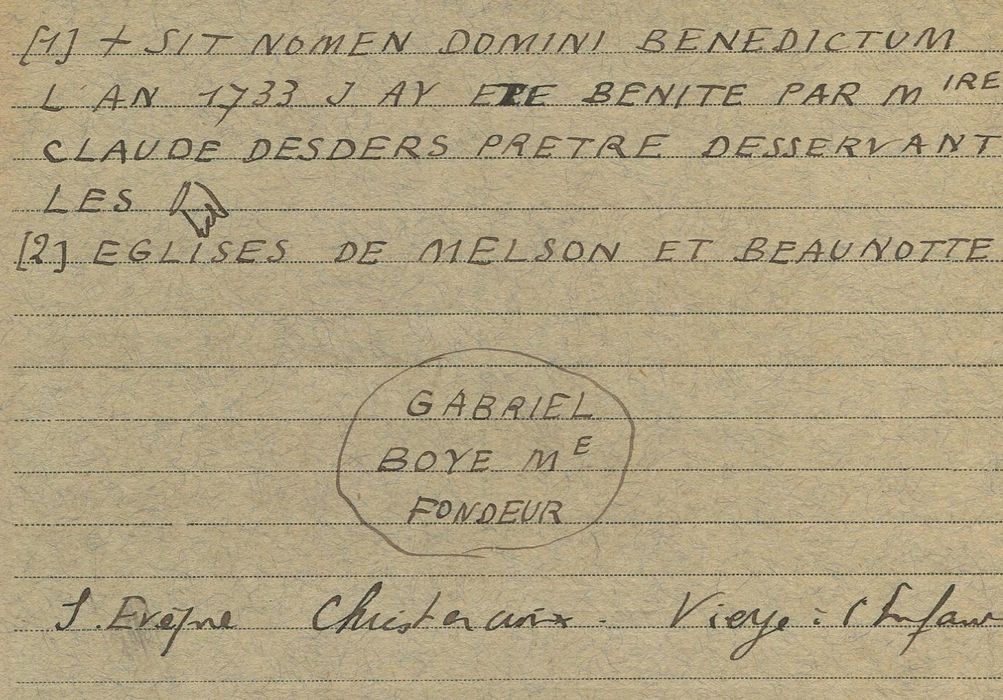 [1] + SIT NOMEN DOMINI BENEDICTUM
L'AN 1733 J AY ETE BENITE PAR MIRE
CLAUDE DESDERS PRETRE DESSERVANT
LES
[2] EGLISES DE MELSON ET BEAUNOTTE
GABRIEL
BOYE ME
FONDEUR
S. Evêque Christ en croix. Vierge à l'Enfant